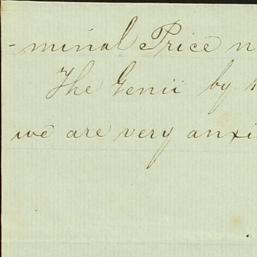 -minal Price n
The Genii by
we are very anxi